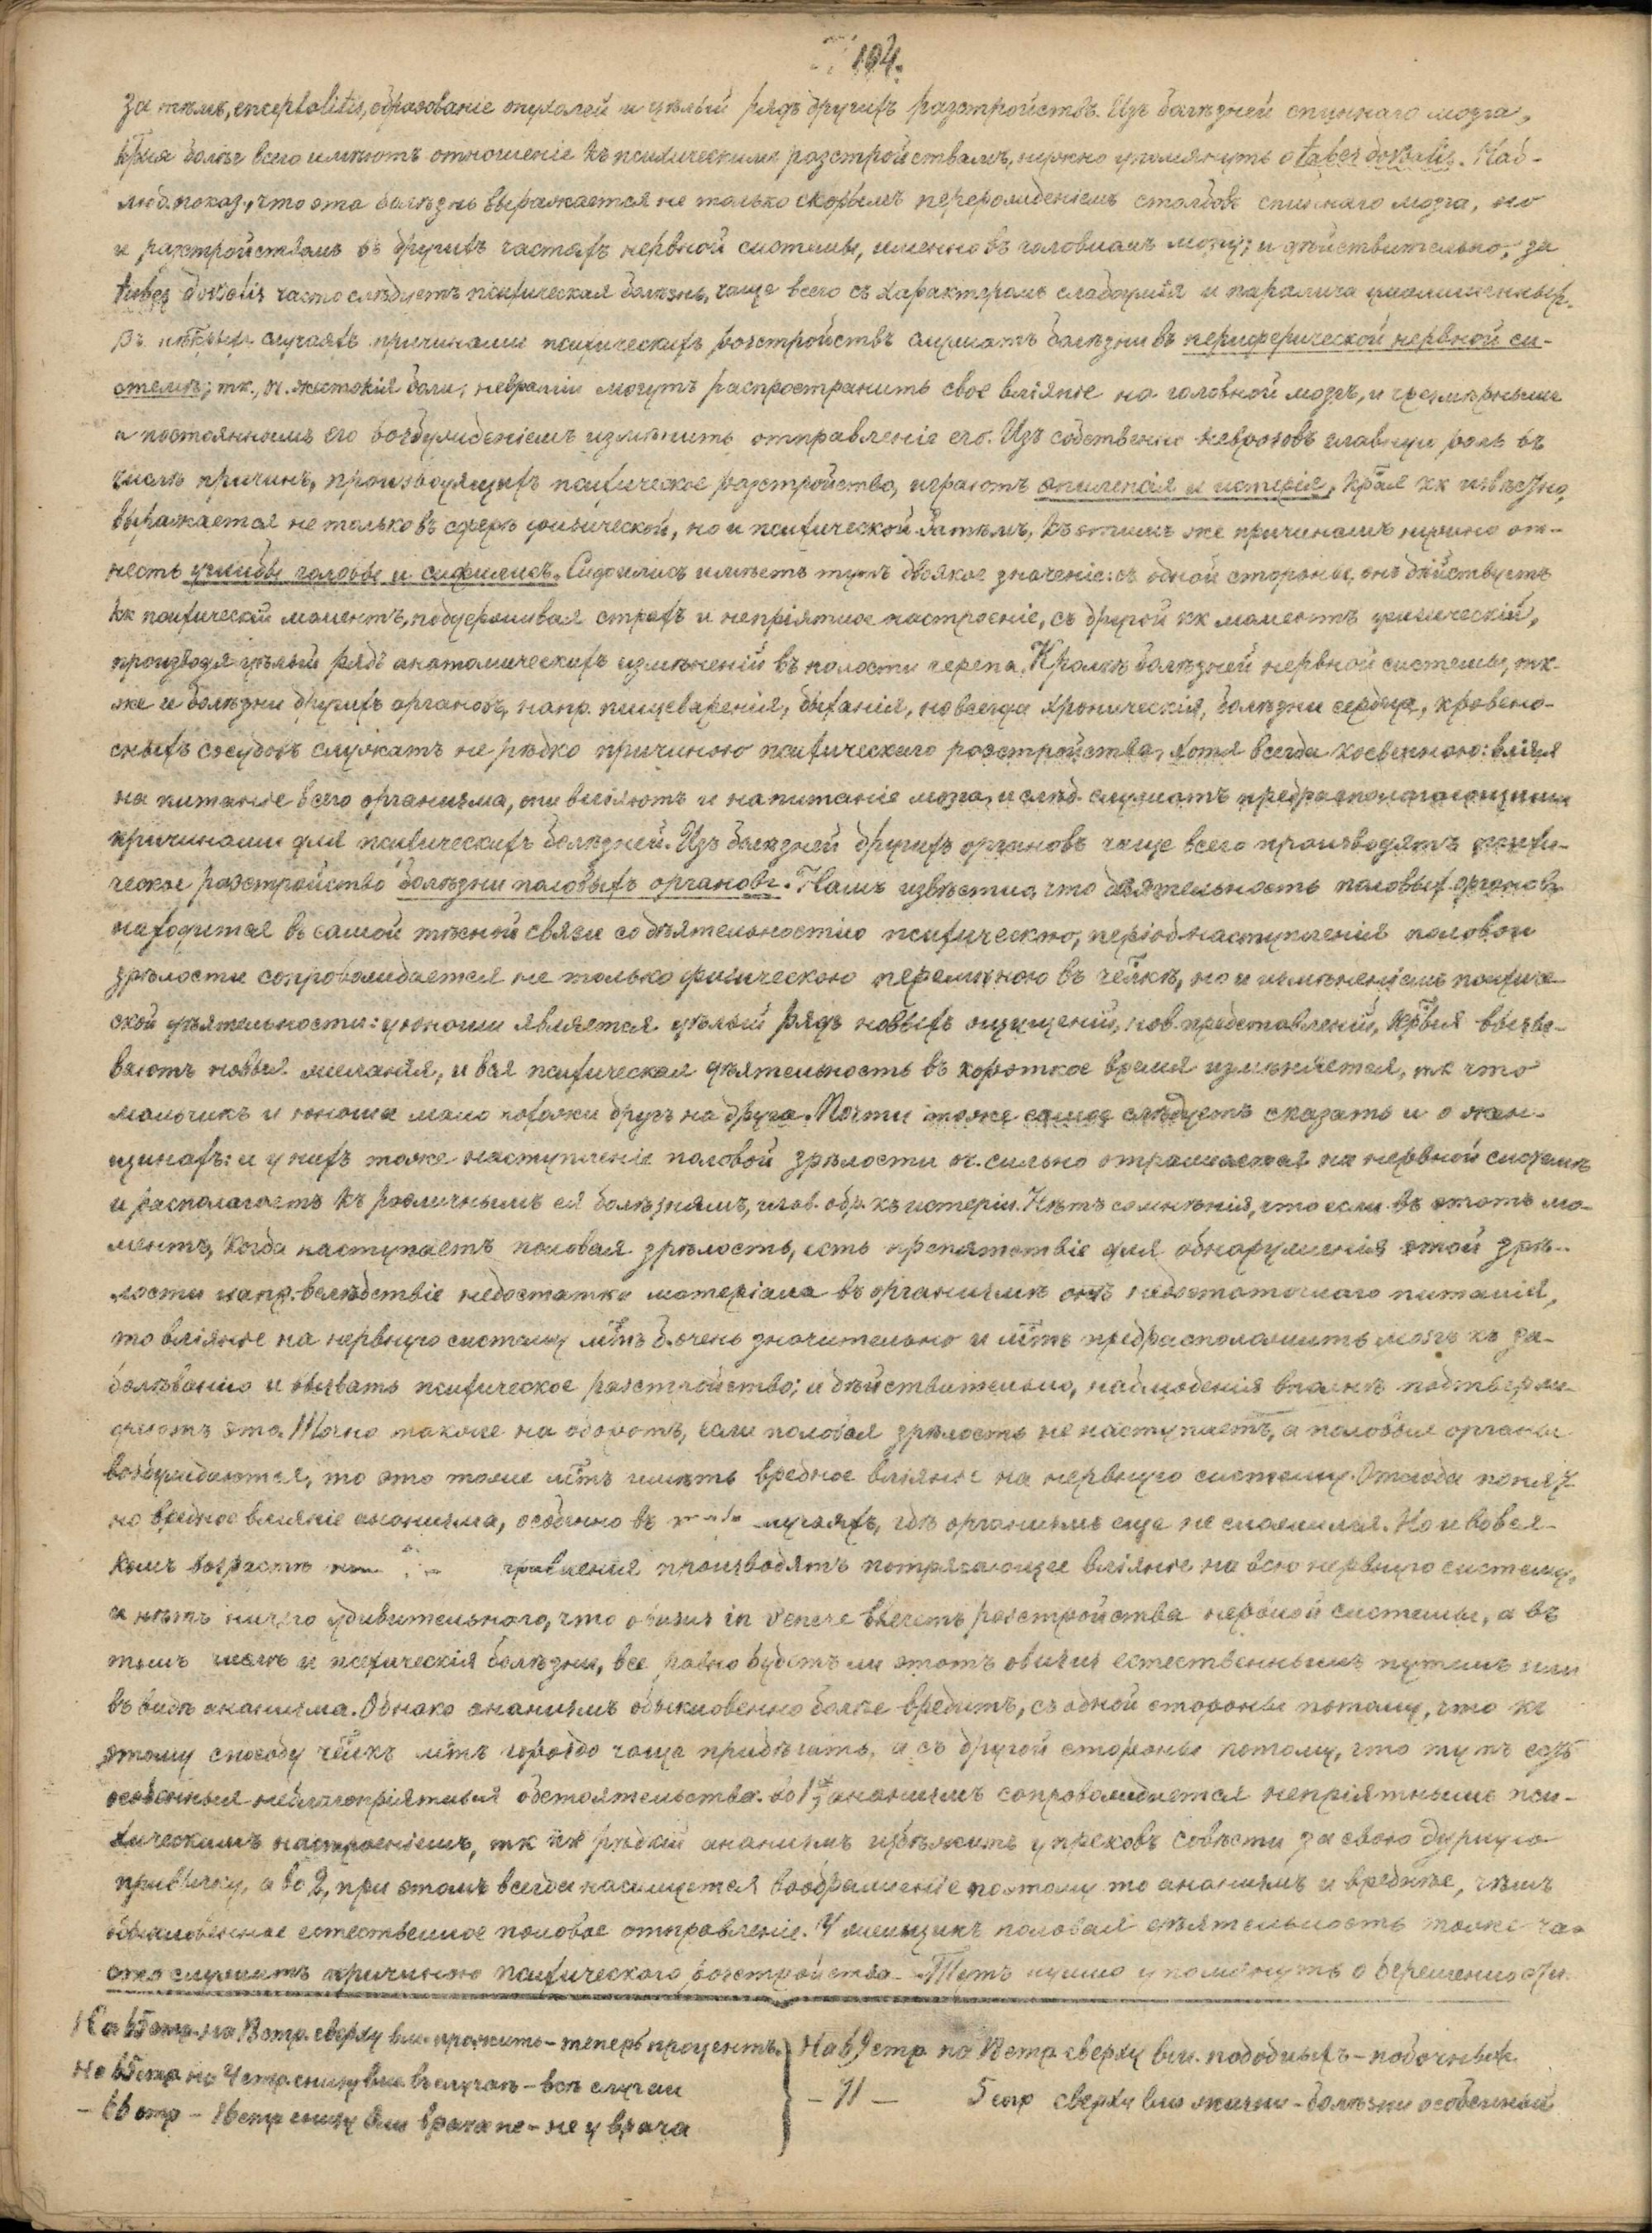 104.
За тѣмъ, encephalitis, образованіе опухолей и цѣлый рядъ другихъ разстройствъ. Изъ болѣзней спиннаго мозга,
кр͞ыя болѣе всего имѣютъ отношеніе къ психическимъ разстройствамъ, нужно упомянуть о tabes dorsalis. Наб-
люд. показ., что эта болѣзнь выражается не только скорымъ перерожденіемъ столбовъ спиннаго мозга, но
и разстройствамъ въ другихъ частяхъ нервной системы, именно въ головномъ мозгу; и дѣйствительно, за
tabes dorsalis часто слѣдуетъ психическая болѣзнь, чаще всего съ характеромъ слабоумія и паралича умалишенныхъ.
Въ нѣк͞рыхъ случаяхъ причинами психическихъ разстройствъ служатъ болѣзни въ периферической нервной си-
стемѣ; тк., н. жестокія боли, невралгіи могутъ распространить свое вліяніе на головной мозгъ, и чрезмѣрнымъ
и постояннымъ его возбужденіемъ измѣнить отправленіе его. Изъ собственно неврозовъ главную роль въ
числѣ причинъ, производящихъ психическое разстройство, играютъ эпилепсія и истерія, кр͞ая кк извѣстно,
выражается не только въ сферѣ физической, но и психической. Затѣмъ, къ этимъ же причинамъ нужно от-
несть ушибы головы и сифилисъ. Сифилисъ имѣетъ тутъ двоякое значеніе: съ одной стороны, онъ дѣйствуетъ
кк психической моментъ, поддерживая страхъ и непріятное настроеніе, съ другой кк моментъ физическій,
производя цѣлый рядъ анатомическихъ измѣненій въ полости черепа. Кромѣ болѣзней нервной системы, тк-
же и болѣзни другихъ органовъ, напр. пищеваренія, дыханія, но всегда хроническія, болѣзни сердца, кровено-
сныхъ сосудовъ служатъ не рѣдко причиною психическаго разстройства, хотя всегда косвенною: вліяя
на питаніе всего организма, они вліяютъ и на питаніе мозга, и слѣд. служатъ предрасполагающими
причинами для психическихъ болѣзней. Изъ болѣзней другихъ органовъ чаще всего производятъ психи-
ческое разстройство болѣзни половыхъ органовъ. Намъ извѣстно, что дѣятельность половых. органовъ
находится въ самой тѣсной связи со дѣятельностію психическою; періодъ наступленія половой
зрѣлости сопровождается не только физическою перемѣною въ чел͞кѣ, но и измѣненіемъ психиче-
ской дѣятельности: у юноши является цѣлый рядъ новыхъ ощущеній, нов. представленій, кр͞выя вызы-
ваютъ новыя желанія, и вся психическая дѣятельность въ короткое время измѣняется, тк что
мальчикъ и юноша мало похожи другъ на друга. Почти тоже самое слѣдуетъ сказать и о жен-
щинахъ: и у нихъ тоже наступленіе половой зрѣлости оч. сильно отражается на нервной системѣ
и располагаетъ къ различнымъ ея болѣзнямъ, глав. обр. къ истеріи. Нѣтъ сомнѣнія, что если въ этотъ мо-
ментъ, когда наступаетъ половая зрѣлость, есть препятствіе для обнаруженія этой зрѣ-
лости напр. вслѣдствіе недостатка матеріала въ организмѣ отъ недостаточнаго питанія,
то вліяніе на нервную систему м͞тъ б. очень значительно и м͞тъ предрасположить мозгъ къ за-
болѣванію и вызвать психическое разстройство; и дѣйствительно, наблюденія вполнѣ подтверж-
даютъ это. Точно также на оборотъ, если половая зрѣлость не наступаетъ, а половые органы
возбуждаются, то это тоже м͞тъ имѣть вредное вліяніе на нервную систему. Отсюда понят-
но вредное вліяніе онанизма, особенно въ случаяхъ, гдѣ организмъ еще не сложился. Но и во вся-
комъ возрастѣ производятъ потрясающее вліяніе на всю нервную систему,
и нѣтъ ничего удивительнаго, что abusus in Venere влечетъ разстройства нервной системы, а въ
томъ числѣ и психическія болѣзни, все равно будетъ ли этотъ abusus естественнымъ путемъ или
въ видѣ онанизма. Однако онанизмъ обыкновенно болѣе вредитъ, съ одной стороны потому, что къ
этому способу чел͞къ м͞тъ гораздо чаще прибѣгать, а съ другой стороны потому, что тутъ есть
особенныя неблагопріятныя обстоятельства. Во 1х, онанизмъ сопровождается непріятнымъ пси-
хическимъ настроеніемъ, тк кк рѣдкій онанизмъ избѣжитъ упрековъ совѣсти за свою дурную
привычку, а во 2, при этомъ всегда насилуется воображеніе поэтому то онанизмъ и вреднѣе, чѣмъ
обыкновенное естественное половое отправленіе. У женщинъ половая дѣятельность тоже ча-
сто служитъ причиною психическаго разстройства. Тутъ нужно упомянуть о беременности.
На 65 стр. на 13 стр. сверху вм. прожить – теперь процентъ.
На 65 стр на 4 стр. снизу вм. въ случаѣ – всѣ случаи
– 66 стр – 16 стр снизу вм врача не – не у врача
На 69 стр на 13 стр. сверху вм. подобныхъ – побочныхъ
– 71 – 5 стр сверху вм жизни – болѣзни особенной